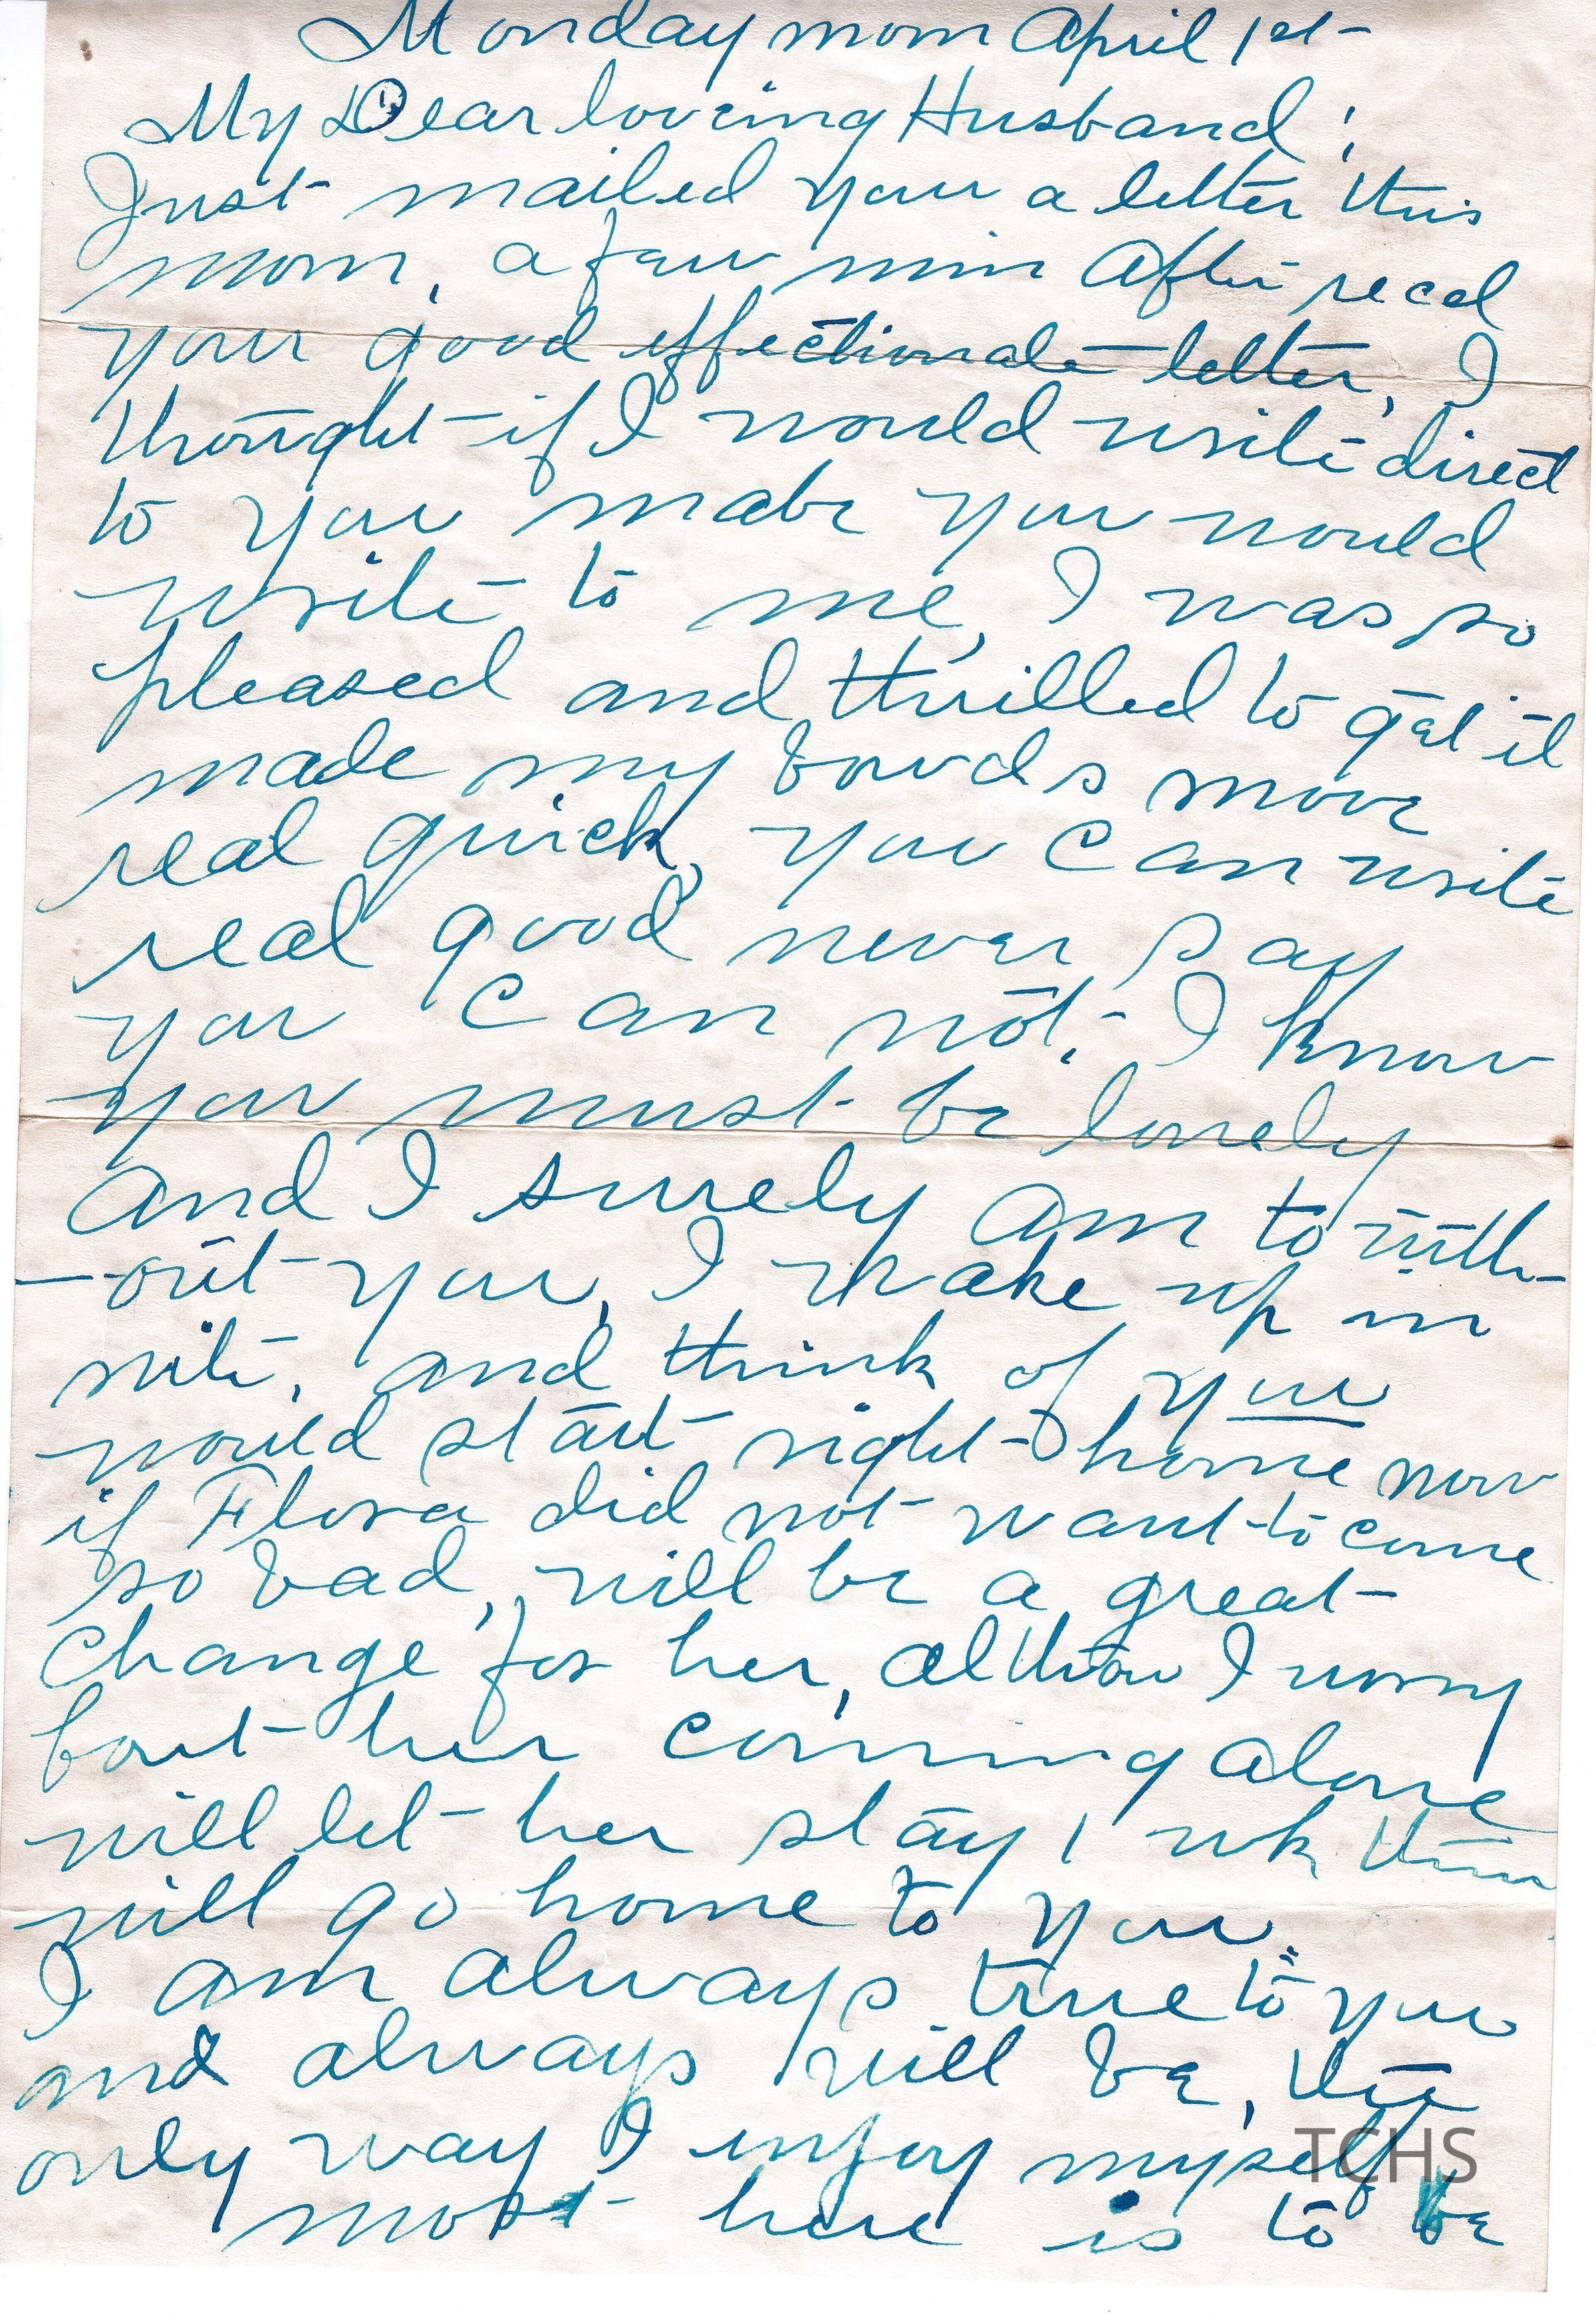 Monday morn April 1st-
My Dear loving Husband;
Just mailed you a letter this
morn, a few min After recd
your good effectionate letter, I
thought if I would write direct
to you mabe you would
write to me, I was so
pleased and thrilled to get it
made my bowels move
real quick, you Can write
real good never say
you Can not. I know
you must be lonely
And I surely am to with-
-out you, I wake up in
nite, and think of you
would start right home now
if Flora did not want to come
so bad, will be a great
Change for her, altho I worry
bout her coming alone
will let her stay 1 wk then
will go home to you.
I am always true to you
and always will be, the
only way I injoy myself
most here is to be
TCHS